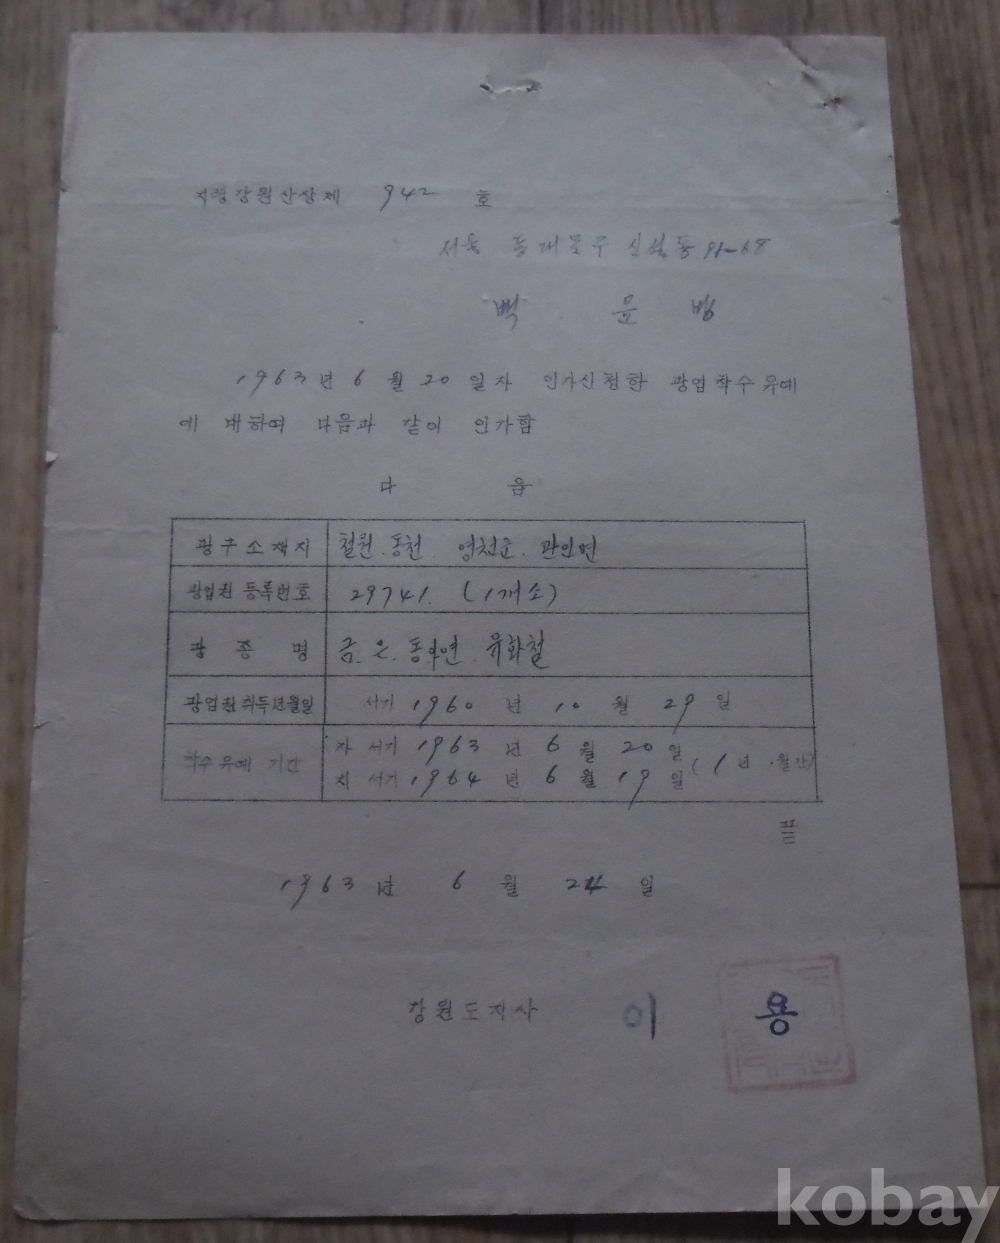 지령강원산상제 942 호
서울 동대문구 신설동 91-68
백 윤 빙
1963년 6월 20일자 인가신청한 광업착수유예
에 대하여 다음과 같이 인가함
다 음
광구소재지 철원. 동천. 영천군. 관인면
광업권 등록번호 29741. (1개소)
광종명 금. 은. 동. 아연. 유화철
광업권취득년월일 서기 1960년 10월 29일
착수유예 기간 자 서기 1963년 6월 20일
지 서기 1964년 6월 19일 (1년 월간)
끝
1963년 6월 24일
강원도지사 이 용
kobay